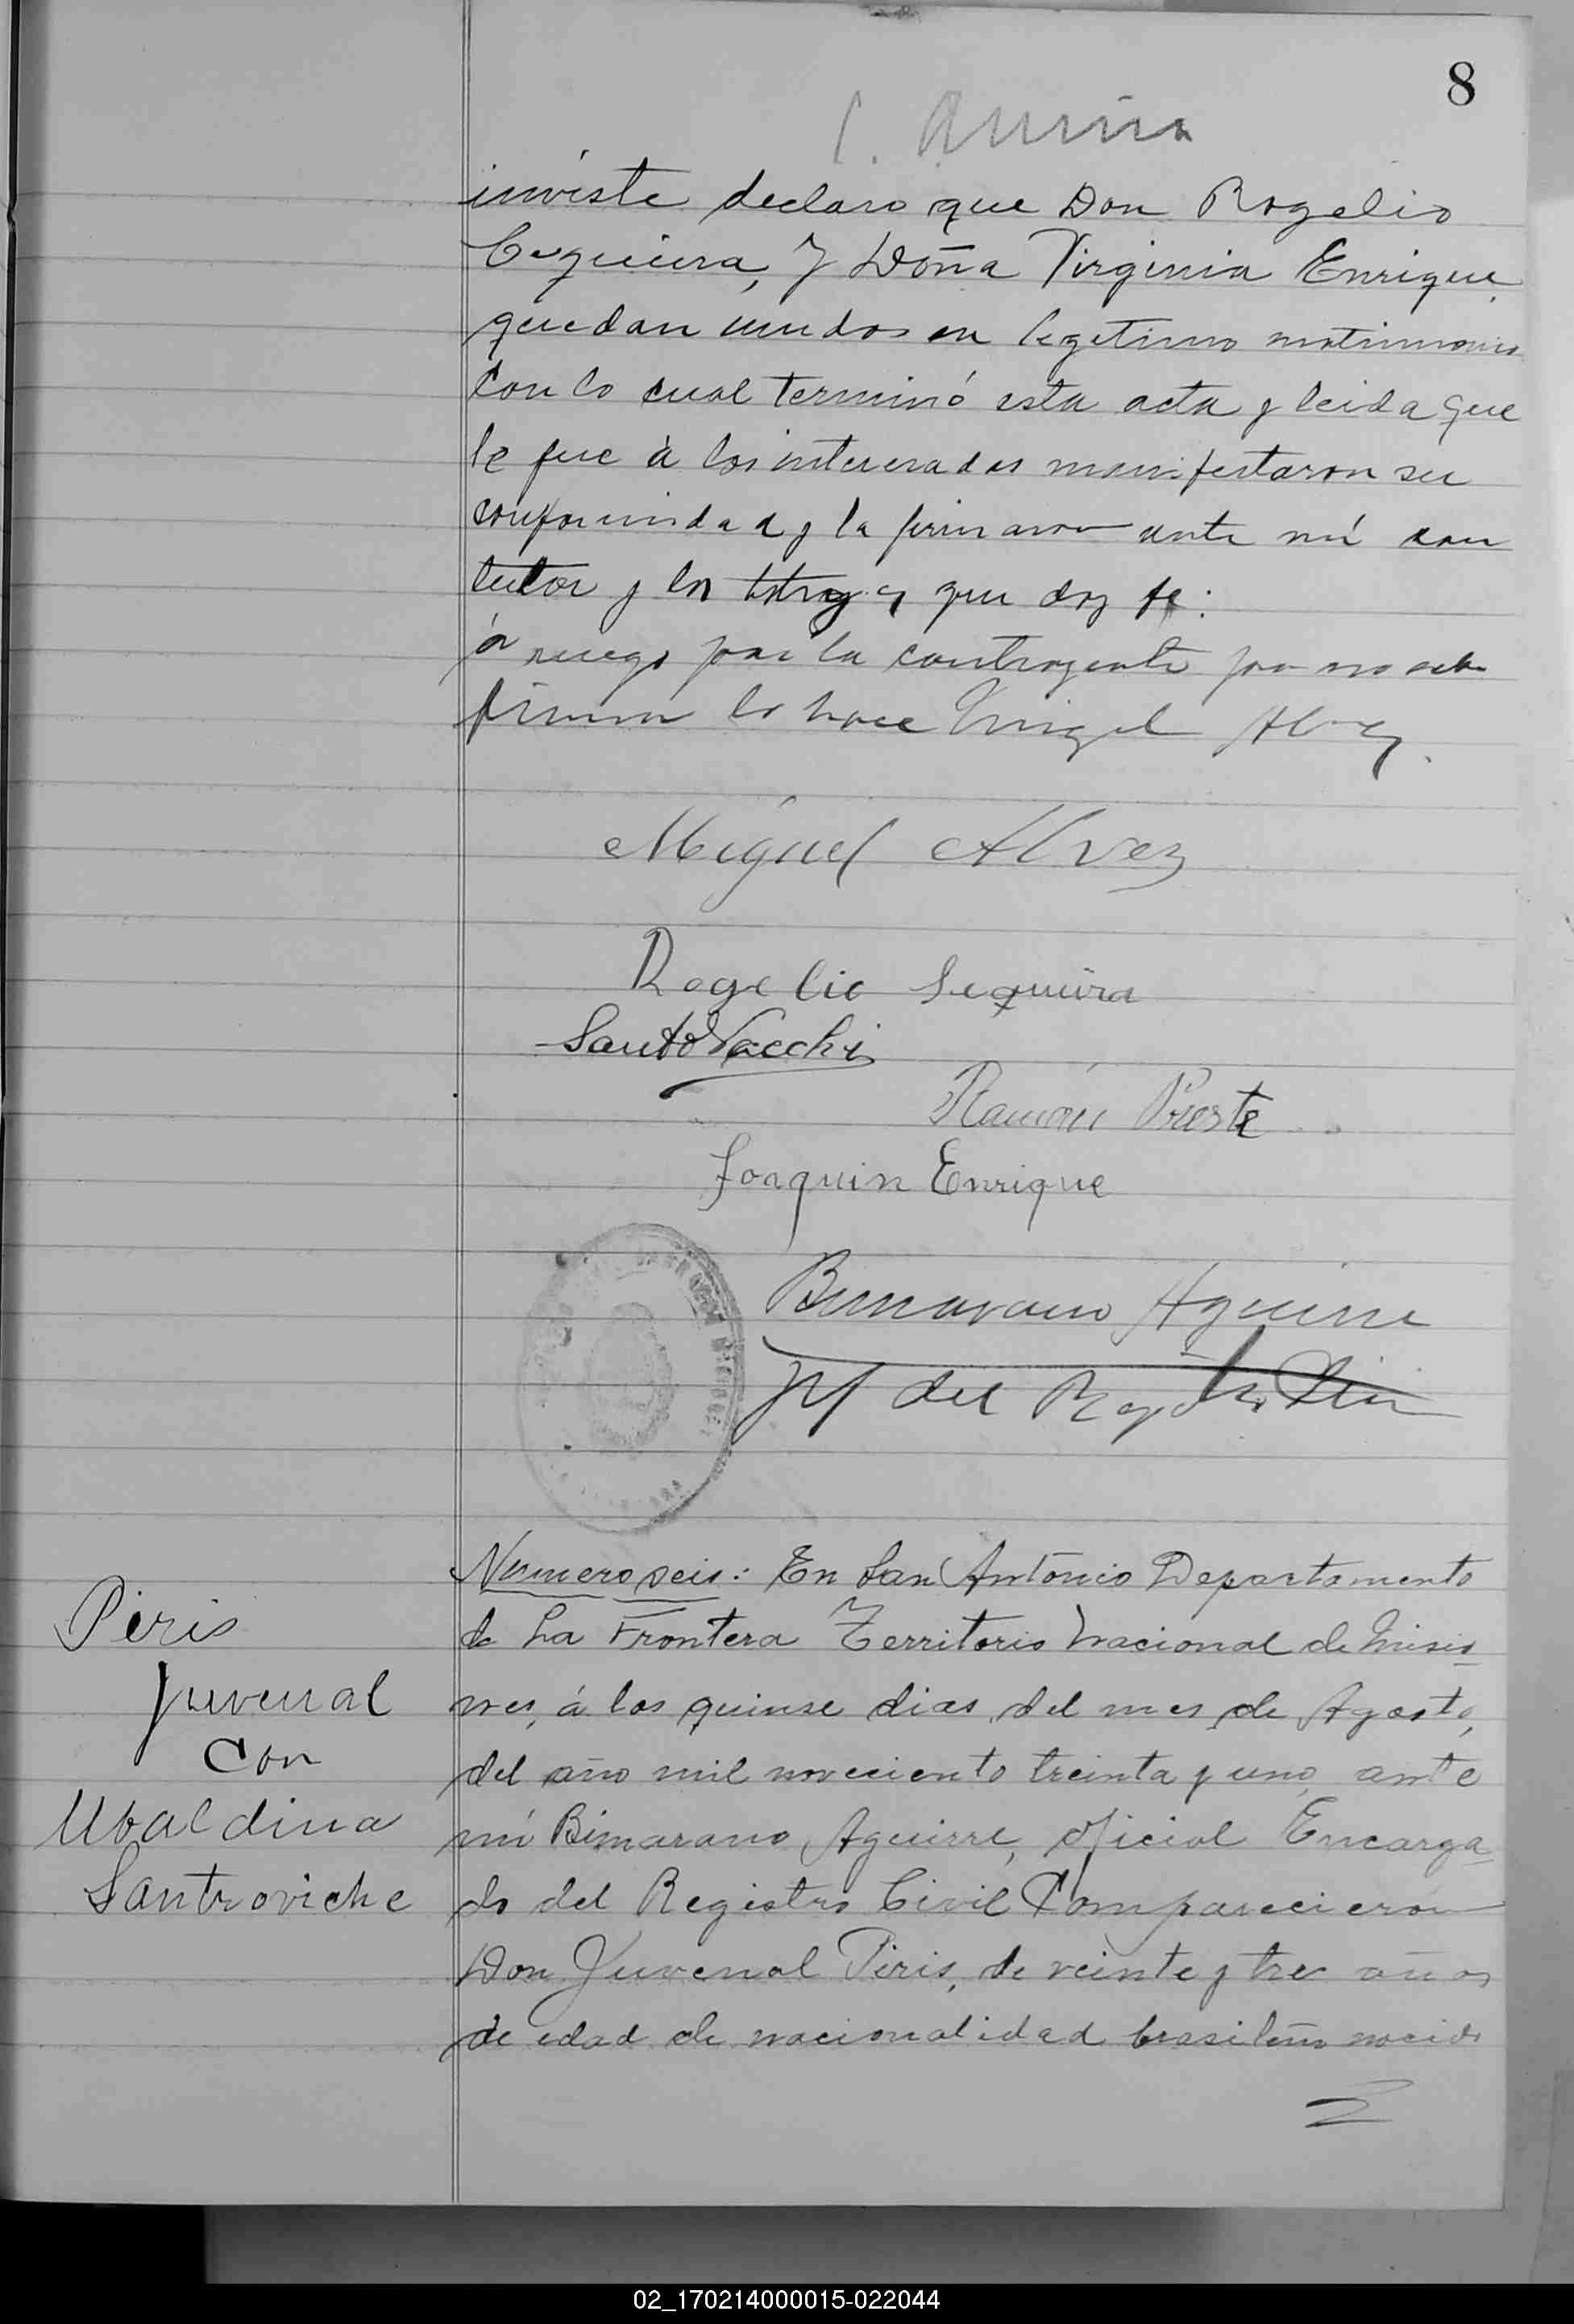 8
inviste declaro que Don Rogelio
Cequeira, y Doña Virginia Enrique
quedan unidos en legitimo matrimonio
con lo cual terminó esta acta y leida que
le fue á los interesados manifestaron su
conformidad y la firmaron ante mí con
tutor y los que doy fe:
á ruego por la contrayente por no saber
firmar lo hace Miguel Alvez.
Miguel Alvez
Rogelio Sequeira
Santo Vacchi
Ramón Prieste
Joaquin Enrique
Bimarano Aguirre
Jef del Reg
Piris
Juvenal
Con
Ubaldina
Santroviche
Numero seis: En San Antonio Departamento
de La Frontera Territorio Nacional de Misio
nes, á los quinse dias del mes de Agosto,
del año mil noveciento treinta y uno, ante
mí Bimarano Aguirre, oficial Encarga
do del Registro Civil Comparecieron
Don Juvenal Piris, de veinte y tres años
de edad de nacionalidad brasileño nacido
02_170214000015-022044